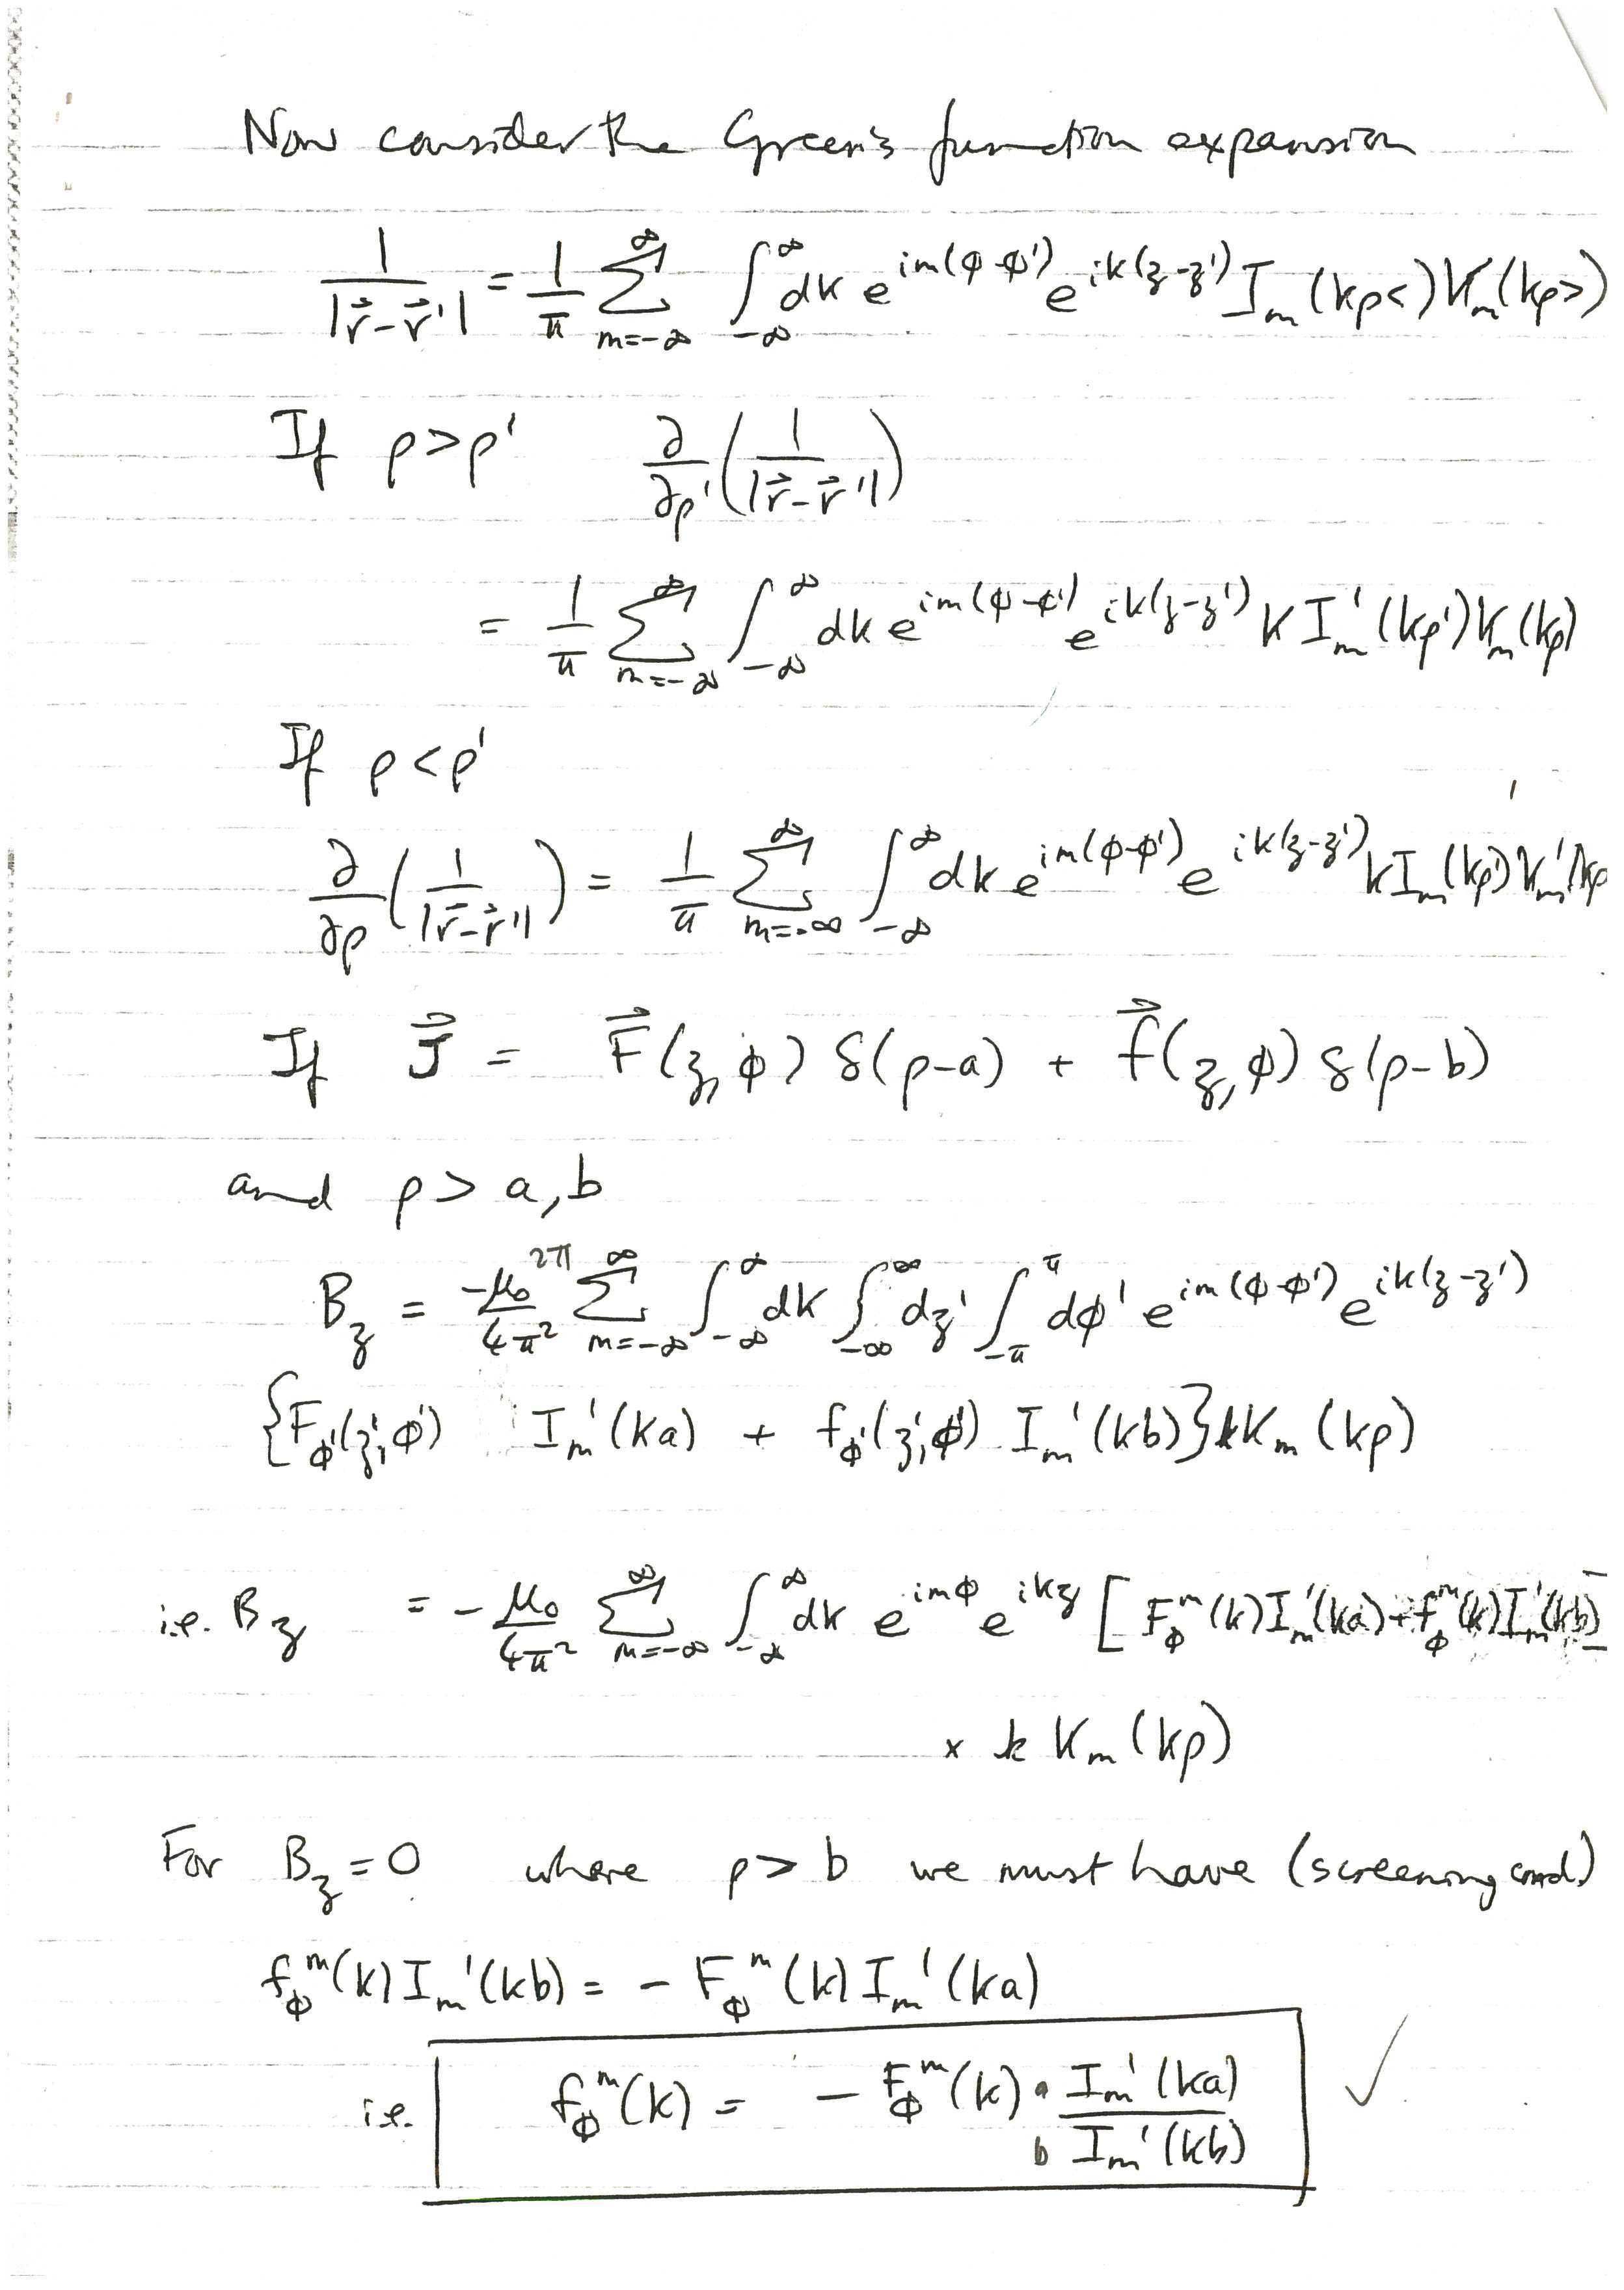 Now consider the Green's function expansion
1/|r⃗-r⃗'| = 1/π ∑_{m=-∞}^{∞} ∫_{-∞}^{∞} dk e^{im(φ-φ')} e^{ik(z-z')} I_m(kρ<) K_m(kρ>)
If ρ>ρ' ∂/∂ρ' (1/|r⃗-r⃗'|)
= 1/π ∑_{m=-∞}^{∞} ∫_{-∞}^{∞} dk e^{im(φ-φ')} e^{ik(z-z')} k I_m'(kρ') K_m(kρ)
If ρ<ρ'
∂/∂ρ (1/|r⃗-r⃗'|) = 1/π ∑_{m=-∞}^{∞} ∫_{-∞}^{∞} dk e^{im(φ-φ')} e^{ik(z-z')} k I_m(kρ) K_m'(kρ
If J⃗ = F⃗(z,φ) δ(ρ-a) + f⃗(z,φ) δ(ρ-b)
and ρ> a,b
B_z = -μ₀/4π² 2π ∑_{m=-∞}^{∞} ∫_{-∞}^{∞} dk ∫_{-∞}^{∞} dz' ∫_{-π}^{π} dφ' e^{im(φ-φ')} e^{ik(z-z')}
{F_φ'(z',φ') I_m'(ka) + f_φ'(z',φ') I_m'(kb)} k K_m(kρ)
i.e. B_z = - μ₀/4π² ∑_{m=-∞}^{∞} ∫_{-∞}^{∞} dk e^{imφ} e^{ikz} [F_φ^m(k) I_m'(ka) + f_φ^m(k) I_m'(kb)]
× k K_m(kρ)
For B_z = 0 where ρ > b we must have (screening cond.)
f_φ^m(k) I_m'(kb) = - F_φ^m(k) I_m'(ka)
i.e. f_φ^m(k) = - F_φ^m(k) · a I_m'(ka) / b I_m'(kb) ✓